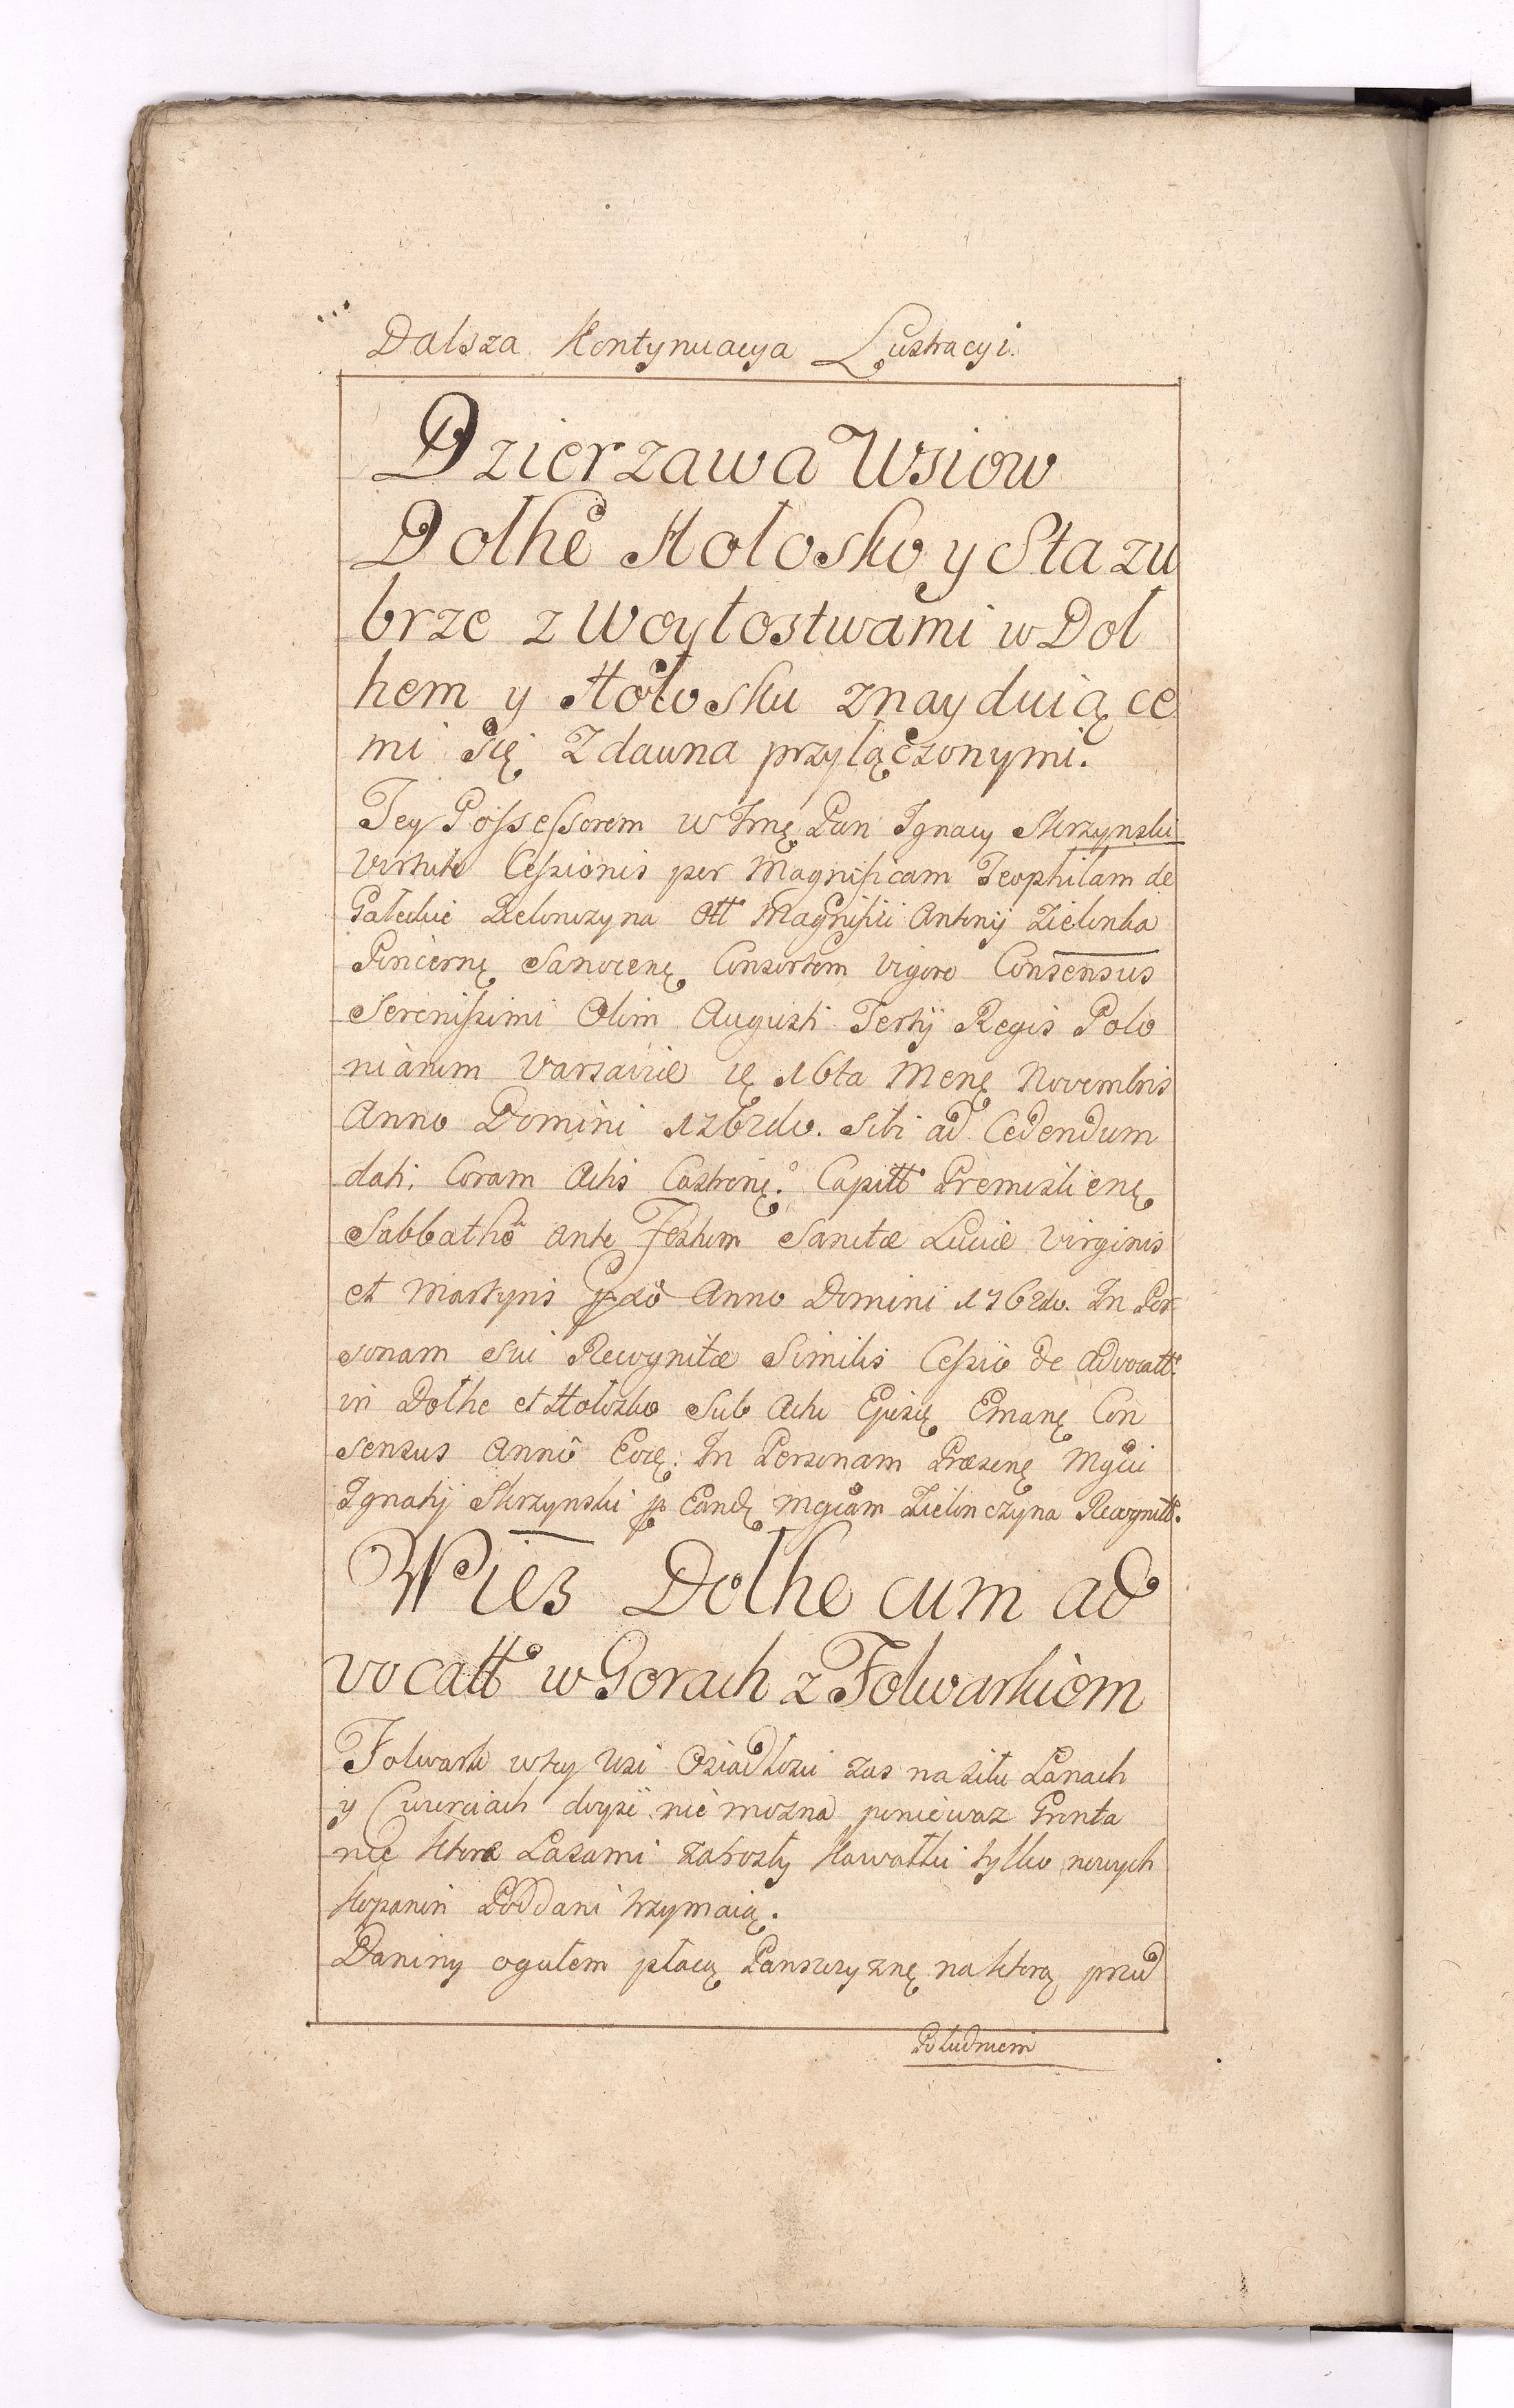 Dalsza Kontynuacya Lustracyi.
Dzierzawa Wsiow
Dołhe Hołosko y Stazu
brze z Woytostwami w Doł
hem y Hołosku znayduiące
mi się Zdawna przyłączonymi.
Tey Possessorem W Jmę Pan Ignacy Skrzynski
Virtute Cessionis per Magnificam Teophilam de
Zielinczyna Ott Magnifici Antonij Zielonka
Pincernę Sanocenę Consortem Vigore Consensus
Serenissimi Olim Augusti Tertij Regis Polo
niarum Varsaviæ 16ta Menę Novembris
Anno Domini 1762do. Sibi ad Cedendum
dati, Coram Actis Castrenę. Capitt Premislienę
Sabbathŏ ante Festum Sanctæ Luciæ Virginis
et Martyris Anno Domini 1762do. In Per
sonam Sui Recognitæ Similis Cessio de Advocatt
in Dołhe et Hołosko Sub Actu Emanę Con
sensus Anno In Personam Præsenę Mgfci
Ignatij Skrzynski p Eandę Mgcam Zielinczyna Recognitt.
Wies Dołhe cum ad
vocatt w Gorach z Folwarkiem
Folwark w tey Wsi Osiadłosci zas na Łanach
y Cwierciach doysc nie mozna poniewaz Gronta
nie ktore Lasami zarosły Kawałki tylko nowych
Kopanin Poddani trzymaią.
Daniny ogułem płacą Panszczyznę na ktorą przed
Południem